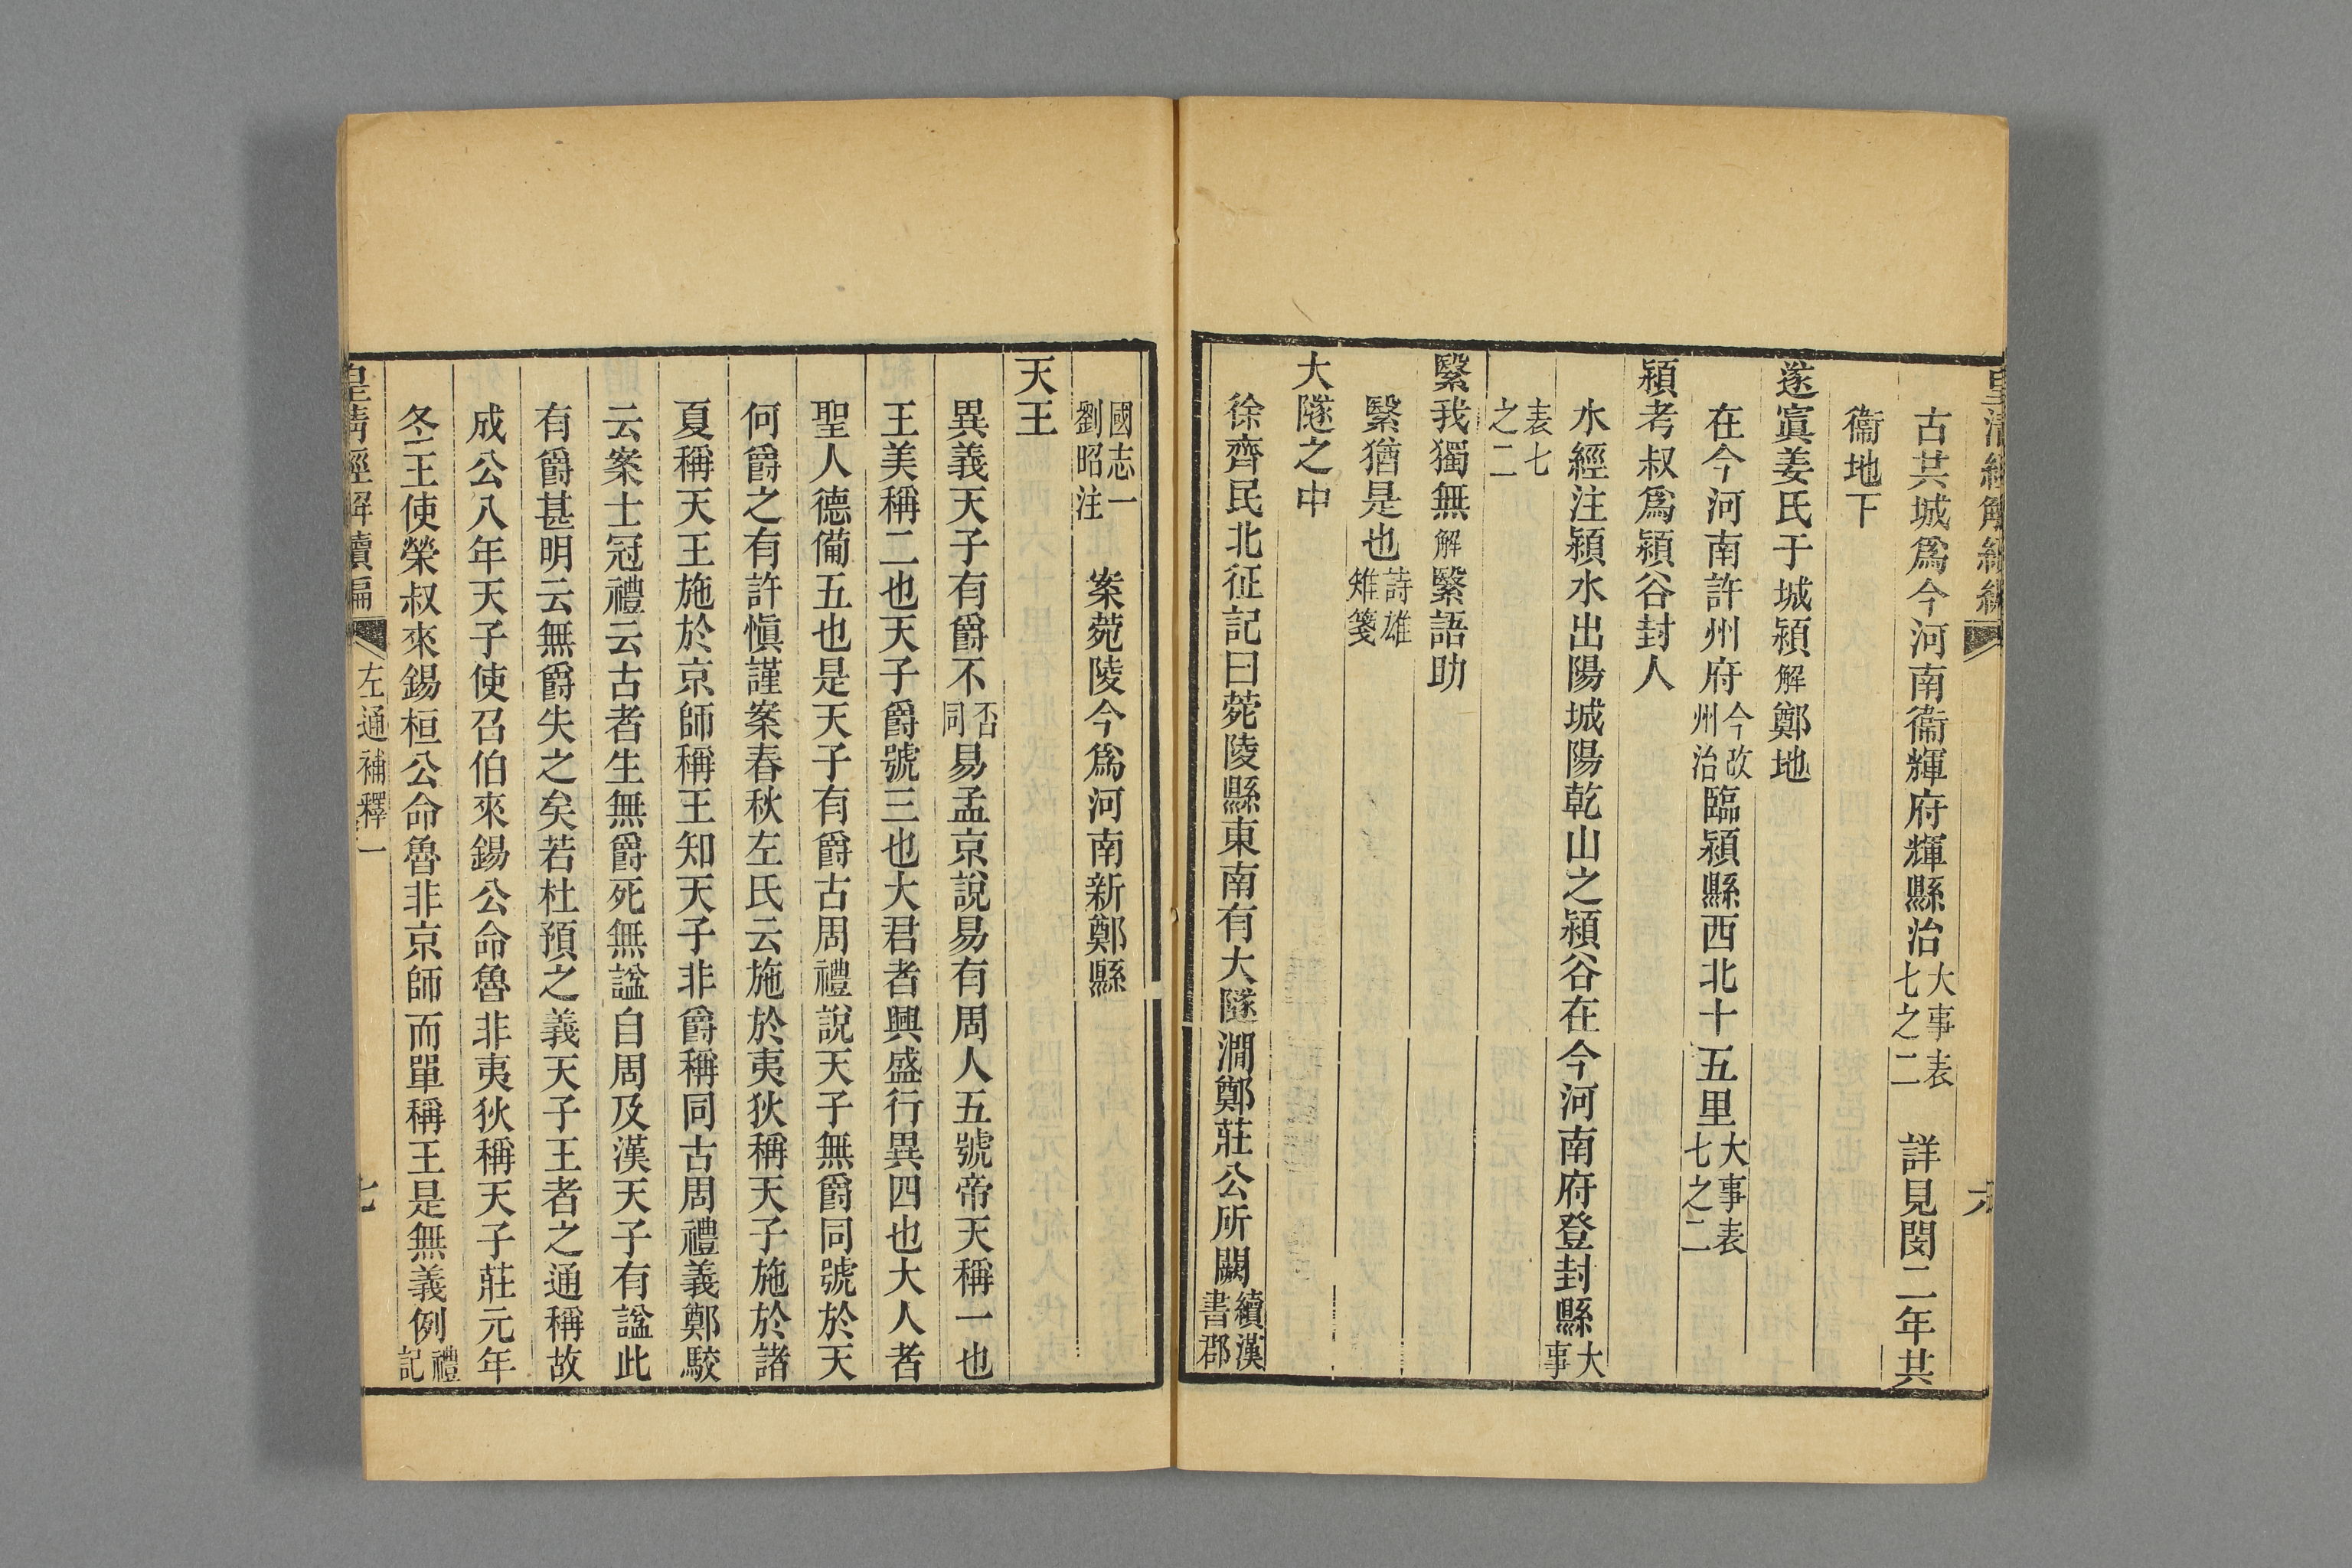 皇清經解續編
六
古共城爲今河南衞輝府輝縣治大事表七之二　詳見閔二年共
衞地下
遂寘姜氏于城潁解鄭地
在今河南許州府今改州治臨潁縣西北十五里大事表七之二
潁考叔爲潁谷封人
水經注潁水出陽城陽乾山之潁谷在今河南府登封縣大事
表七之二
繄我獨無解繄語助
繄猶是也詩雄雉箋
大隧之中
徐齊民北征記曰菀陵縣東南有大隧澗鄭莊公所闕續漢書郡
國志一劉昭注　案菀陵今爲河南新鄭縣
天王
異義天子有爵不否同易孟京說易有周人五號帝天稱一也
王美稱二也天子爵號三也大君者興盛行異四也大人者
聖人德備五也是天子有爵古周禮說天子無爵同號於天
何爵之有許愼謹案春秋左氏云施於夷狄稱天子施於諸
夏稱天王施於京師稱王知天子非爵稱同古周禮義鄭駮
云案士冠禮云古者生無爵死無諡自周及漢天子有諡此
有爵甚明云無爵失之矣若杜預之義天子王者之通稱故
成公八年天子使召伯來錫公命魯非夷狄稱天子莊元年
冬王使榮叔來錫桓公命魯非京師而單稱王是無義例禮記
皇清經解續編
左通補釋一
七